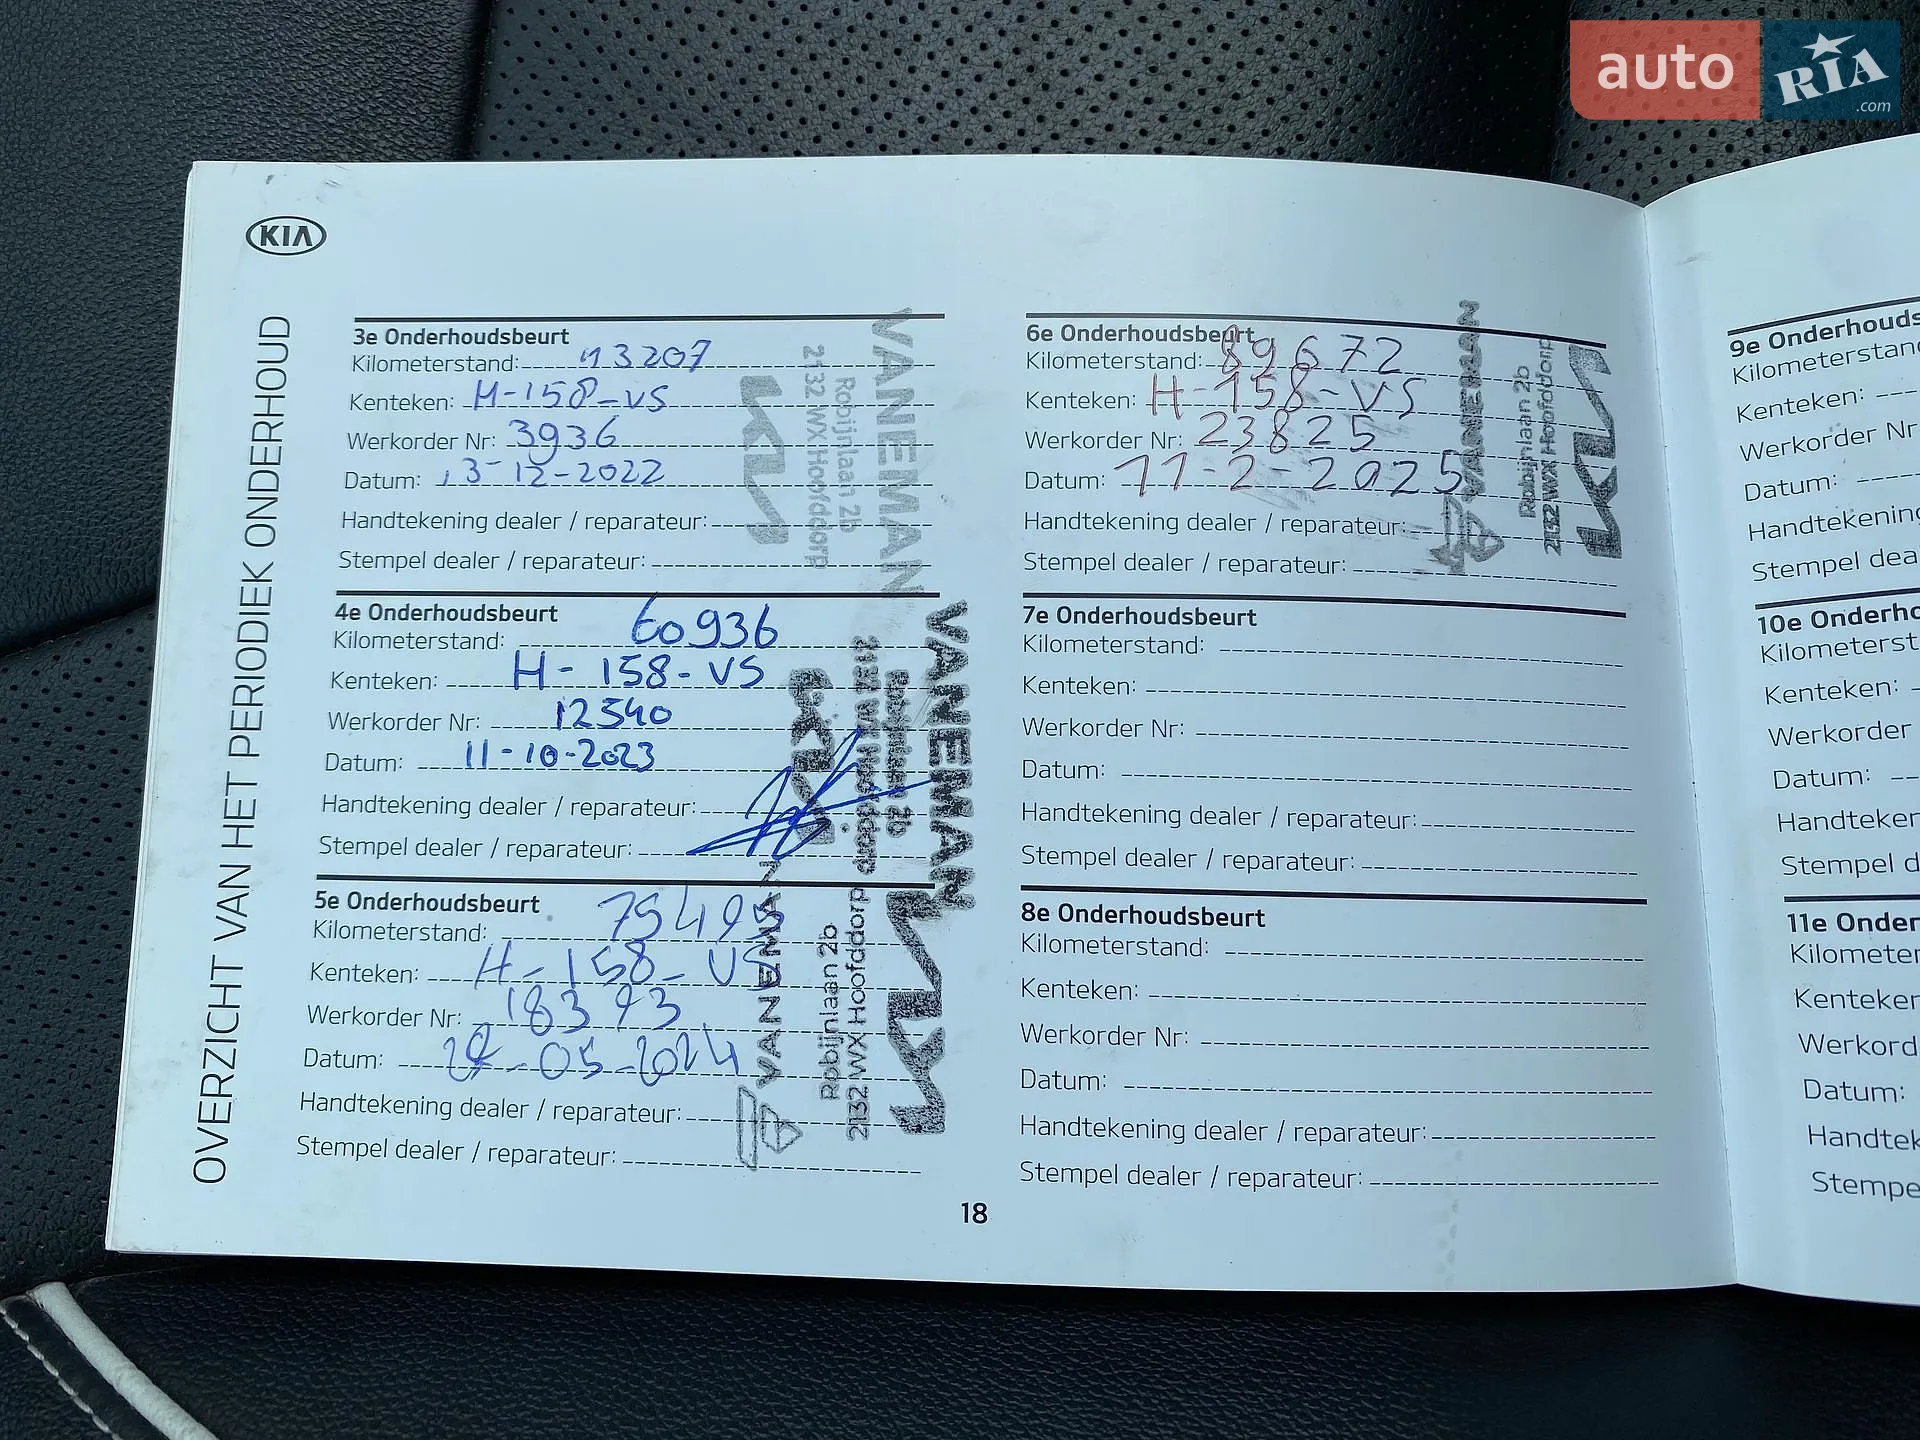 auto RIA .com
KIA
OVERZICHT VAN HET PERIODIEK ONDERHOUD
3e Onderhoudsbeurt
Kilometerstand: 43207
Kenteken: H-158-VS
Werkorder Nr: 3936
Datum: 13-12-2022
Handtekening dealer / reparateur:
Stempel dealer / reparateur:
VANEMAN
Robijnlaan 2b
2132 WX Hoofddorp
KIA
4e Onderhoudsbeurt
Kilometerstand: 60936
Kenteken: H-158-VS
Werkorder Nr: 12540
Datum: 11-10-2023
Handtekening dealer / reparateur:
Stempel dealer / reparateur:
VANEMAN
Robijnlaan 2b
2132 WX Hoofddorp
KIA
5e Onderhoudsbeurt
Kilometerstand: 75495
Kenteken: H-158-VS
Werkorder Nr: 18393
Datum: -05-2024
Handtekening dealer / reparateur:
Stempel dealer / reparateur:
VANEMAN
Robijnlaan 2b
2132 WX Hoofddorp
KIA
6e Onderhoudsbeurt
Kilometerstand: 89672
Kenteken: H-158-VS
Werkorder Nr: 23825
Datum: 11-2-2025
Handtekening dealer / reparateur:
Stempel dealer / reparateur:
VANEMAN
Robijnlaan 2b
2132 WX Hoofddorp
KIA
7e Onderhoudsbeurt
Kilometerstand:
Kenteken:
Werkorder Nr:
Datum:
Handtekening dealer / reparateur:
Stempel dealer / reparateur:
8e Onderhoudsbeurt
Kilometerstand:
Kenteken:
Werkorder Nr:
Datum:
Handtekening dealer / reparateur:
Stempel dealer / reparateur:
18
9e Onderhouds
Kilometerstand
Kenteken:
Werkorder Nr
Datum:
Handtekening
Stempel deal
10e Onderho
Kilometerst
Kenteken:
Werkorder
Datum:
Handteker
Stempel d
11e Onder
Kilometer
Kenteken
Werkord
Datum:
Handtek
Stempe